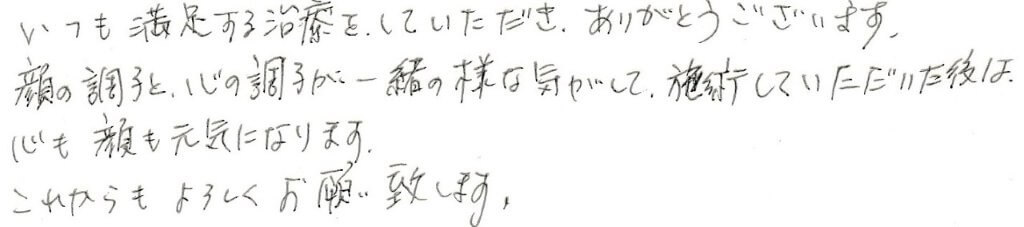 いつも満足する治療をしていただき、ありがとうございます。
顔の調子と、心の調子が一緒の様な気がして、施術していただいた後は、
心も顔も元気になります。
これからもよろしくお願い致します。